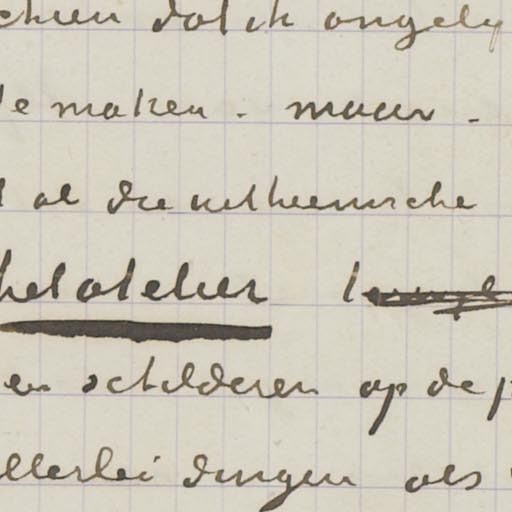 dat ik ongely
te maken. maar -
al die uitheemsche
het atelier
en schilderen op de p
allerlei dingen als